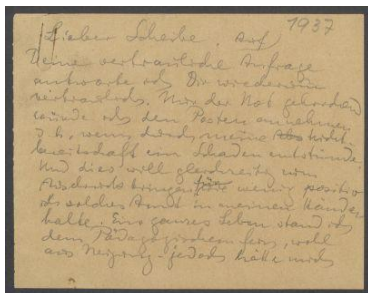 1937
Lieber Scheibe, Auf
Deine vertrauliche Anfrage
antworte ich Dir wiederum
vertraulich. Nur der Not gehorchend
würde ich den Posten annehmen
d. h. wenn durch meine Nicht
bereitschaft ein Schaden entstünde.
Und dies will gleichzeitig zum
Ausdruck bringen, wenig positiv
ich solches Amt in meinen Händen
halte. Ein ganzes Leben stand ich
dem Pädagogischen fern, wohl
aus Neigung jedoch hätte mich